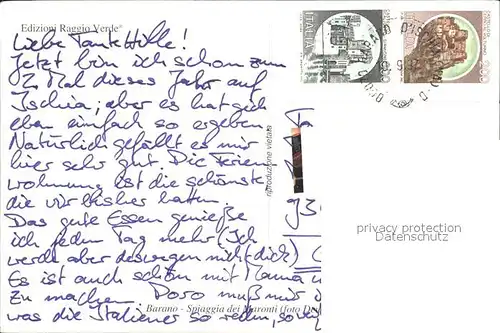 Edizioni Raggio Verde®
Liebe Tante Hille!
Jetzt bin ich schon zum
2. Mal dieses Jahr auf
Ischia; aber es hat sich
eben einfach so ergeben.
Natürlich gefällt es mir
hier sehr gut. Die Ferien
wohnung ist die schönste
die wir bisher hatten.
Das gute Essen genieße
ich jeden Tag mehr (Ich
werde aber deswegen nicht dick)
Es ist auch schön mit Mama
zu machen. Doro muß mir
was die Italiener so reden, so
Barano - Spiaggia dei Maronti (foto
riproduzione vietata
ITALIA
93
privacy protection
Datenschutz